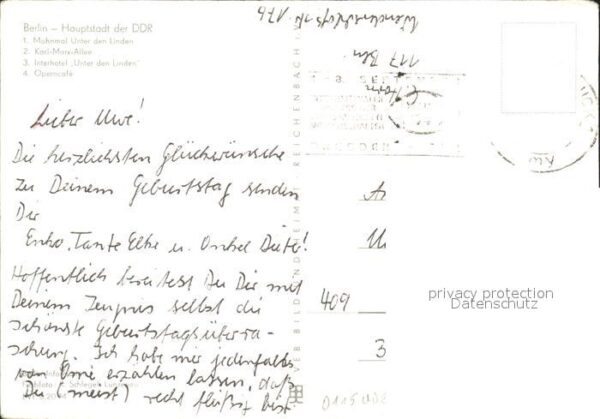 Berlin – Hauptstadt der DDR
1. Mahnmal Unter den Linden
2. Karl-Marx-Allee
3. Interhotel „Unter den Linden"
4. Operncafé
Lieber Uwe!
Die herzlichsten Glückwünsche
zu Deinem Geburtstag senden
Dir
Enko, Tante Elke u. Onkel Dieter!
Hoffentlich bereitest Du Dir mit
Deinem Zeugnis selbst die
schönste Geburtstagsüberra-
schung. Ich habe mir jedenfalls
von Omi erzählen lassen, daß
Du (meist) recht fleißig bist.
VEB BILD UND HEIMAT REICHENBACH
117 Bln.
An
U
409
3
privacy protection
Datenschutz